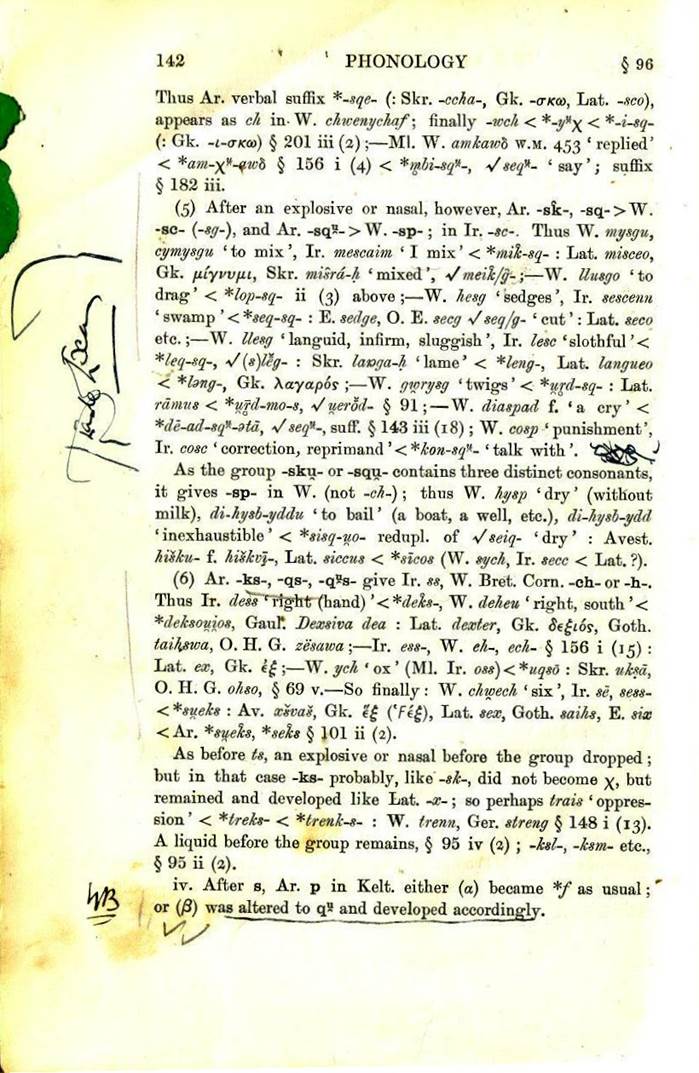 142 PHONOLOGY § 96
Thus Ar. verbal suffix *-sqe- (: Skr. -ccha-, Gk. -σκω, Lat. -sco),
appears as ch in W. chwenychaf; finally -wch < *-yᵘχ < *-i-sq-
(: Gk. -ι-σκω) § 201 iii (2);—Ml. W. amkawδ W.M. 453 ‘replied’
< *am-χᵘ-awδ § 156 i (4) < *m̥bi-squ̯-, √sequ̯- ‘say’; suffix
§ 182 iii.
(5) After an explosive or nasal, however, Ar. -sk-, -sq- > W.
-sc- (-sg-), and Ar. -squ̯- > W. -sp-; in Ir. -sc-. Thus W. mysgu,
cymysgu ‘to mix’, Ir. mescaim ‘I mix’ < *mik̂-sq- : Lat. misceo,
Gk. μίγνυμι, Skr. miśrá-ḥ ‘mixed’, √meik̂/ĝ-;—W. llusgo ‘to
drag’ < *lop-sq- ii (3) above;—W. hesg ‘sedges’, Ir. sescenn
‘swamp’ < *seq-sq- : E. sedge, O. E. secg √seq/g- ‘cut’ : Lat. seco
etc.;—W. llesg ‘languid, infirm, sluggish’, Ir. lesc ‘slothful’ <
*leq-sq-, √(s)lēg- : Skr. laṅga-ḥ ‘lame’ < *leng-, Lat. langueo
< *ləng-, Gk. λαγαρός;—W. gwrysg ‘twigs’ < *u̯r̥d-sq- : Lat.
rāmus < *u̯r̥̄d-mo-s, √u̯erōd- § 91;—W. diaspad f. ‘a cry’ <
*dē-ad-squ̯-ətā, √sequ̯-, suff. § 143 iii (18); W. cosp ‘punishment’,
Ir. cosc ‘correction, reprimand’ < *kon-squ̯- ‘talk with’.
As the group -sku̯- or -squ̯- contains three distinct consonants,
it gives -sp- in W. (not -ch-); thus W. hysp ‘dry’ (without
milk), di-hysb-yddu ‘to bail’ (a boat, a well, etc.), di-hysb-ydd
‘inexhaustible’ < *sisq-u̯o- redupl. of √seiq- ‘dry’ : Avest.
hišku- f. hiškvī-, Lat. siccus < *sīcos (W. sych, Ir. secc < Lat.?).
(6) Ar. -ks-, -qs-, -qu̯s- give Ir. ss, W. Bret. Corn. -ch- or -h-.
Thus Ir. dess ‘right (hand)’ < *deks-, W. deheu ‘right, south’ <
*deksou̯i̯os, Gaul. Dexsiva dea : Lat. dexter, Gk. δεξιός, Goth.
taihswa, O. H. G. zësawa;—Ir. ess-, W. eh-, ech- § 156 i (15) :
Lat. ex, Gk. ἐξ;—W. ych ‘ox’ (Ml. Ir. oss) < *uqsō : Skr. ukṣā,
O. H. G. ohso, § 69 v.—So finally: W. chwech ‘six’, Ir. sē, sess-
< *su̯eks : Av. xšvaš, Gk. ἕξ (ʽϜέξ), Lat. sex, Goth. saihs, E. six
< Ar. *su̯ek̂s, *sek̂s § 101 ii (2).
As before ts, an explosive or nasal before the group dropped;
but in that case -ks- probably, like -sk-, did not become χ, but
remained and developed like Lat. -x-; so perhaps trais ‘oppres-
sion’ < *treks- < *trenk-s- : W. trenn, Ger. streng § 148 i (13).
A liquid before the group remains, § 95 iv (2); -ksl-, -ksm- etc.,
§ 95 ii (2).
iv. After s, Ar. p in Kelt. either (α) became *f as usual;
NB or (β) was altered to qu̯ and developed accordingly.